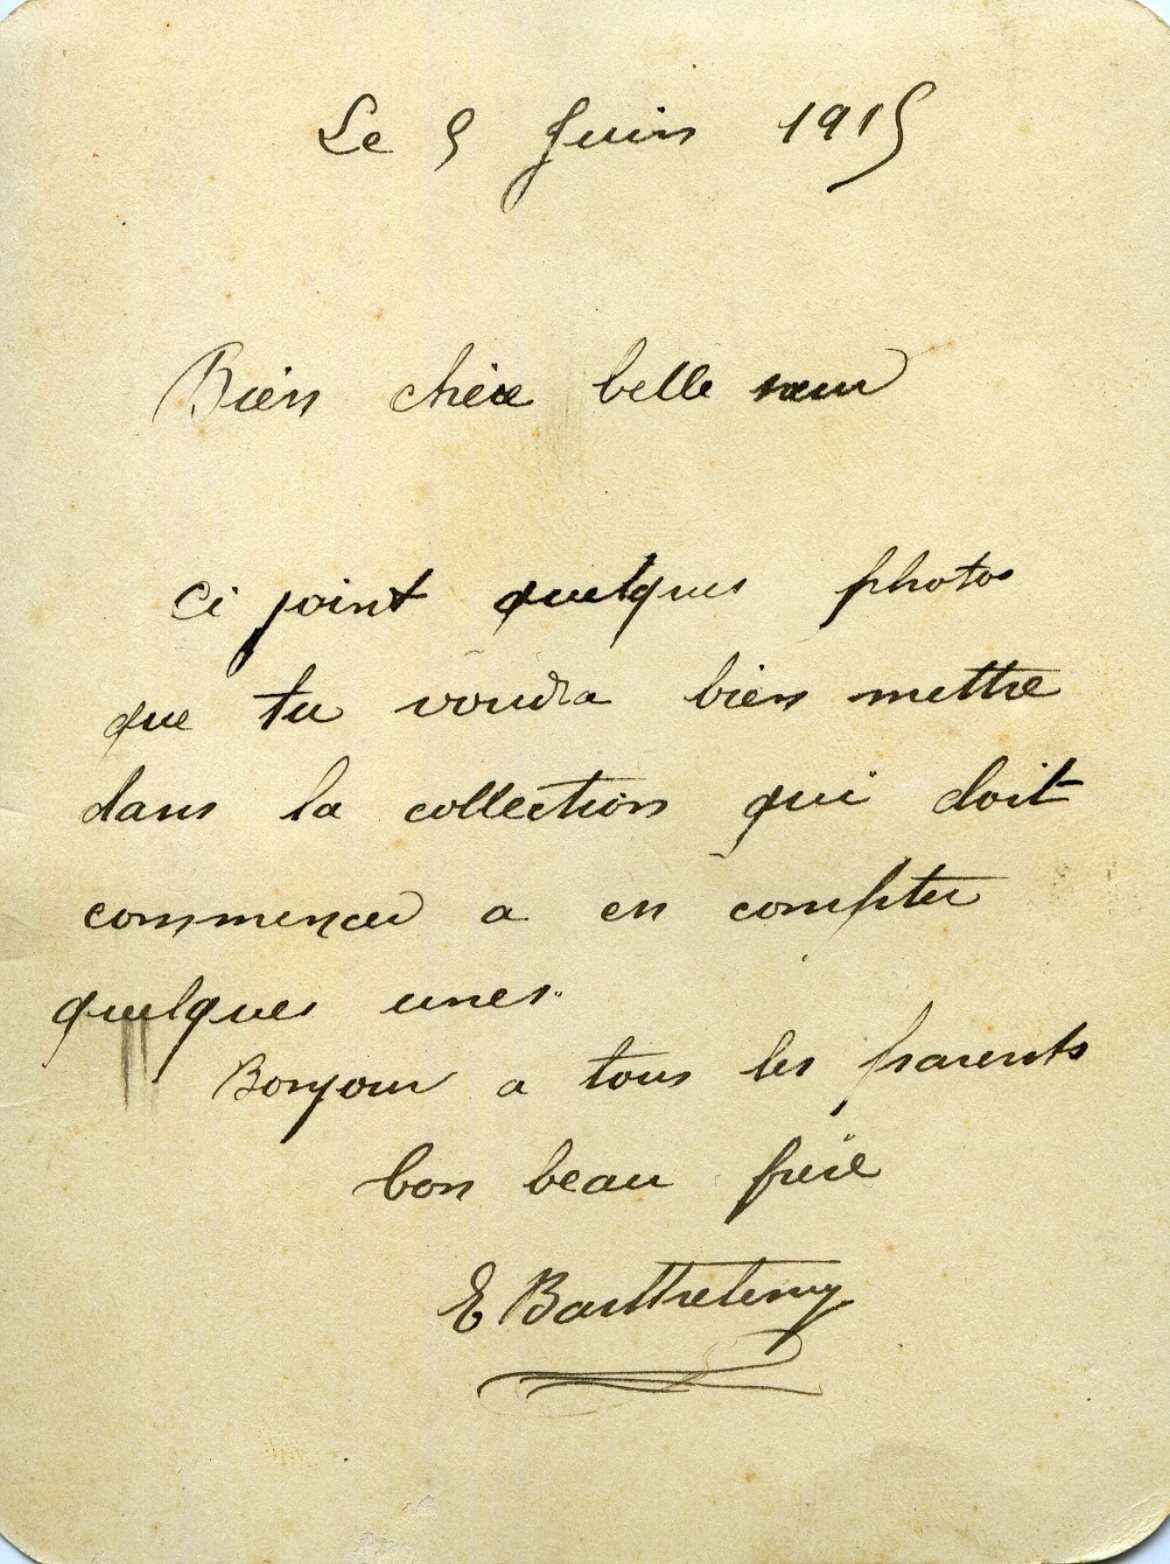 Le 5 Juin 1915
Bien chère belle sœur
Ci joint quelques photos
que tu voudra bien mettre
dans la collection qui doit
commencer a en compter
quelques unes.
Bonjour a tous les parents
bon beau frère
E Barthelemy